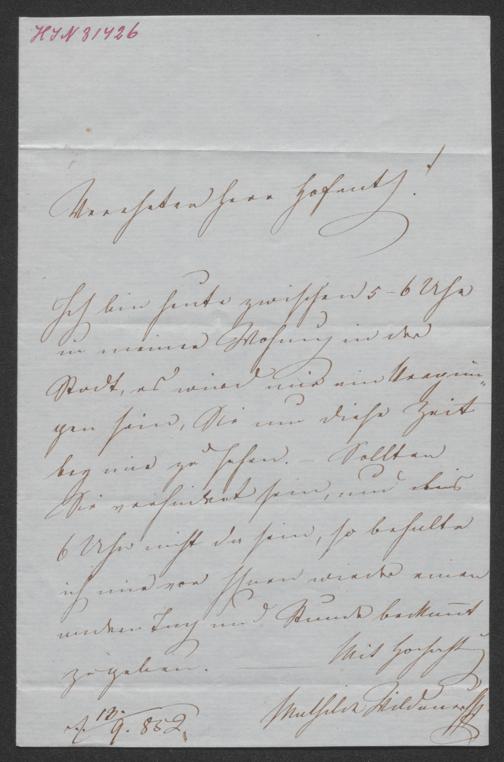 HIN 31426
Verehrter Herr Hofrath!
Ich bin heute zwischen 5-6 Uhr
in meiner Wohnung in der
Stadt, es wird mir ein Vergnü-
gen sein, Sie um diese Zeit
bey mir zu sehen. - Sollten
Sie verhindert sein, und bis
6 Uhr nicht da sein, so behalte
ich mir vor Ihnen wieder einen
andern Tag und Stunde bekannt
zu geben.
Mit Hochacht
Mathilde Wildauer
12.
9. 852